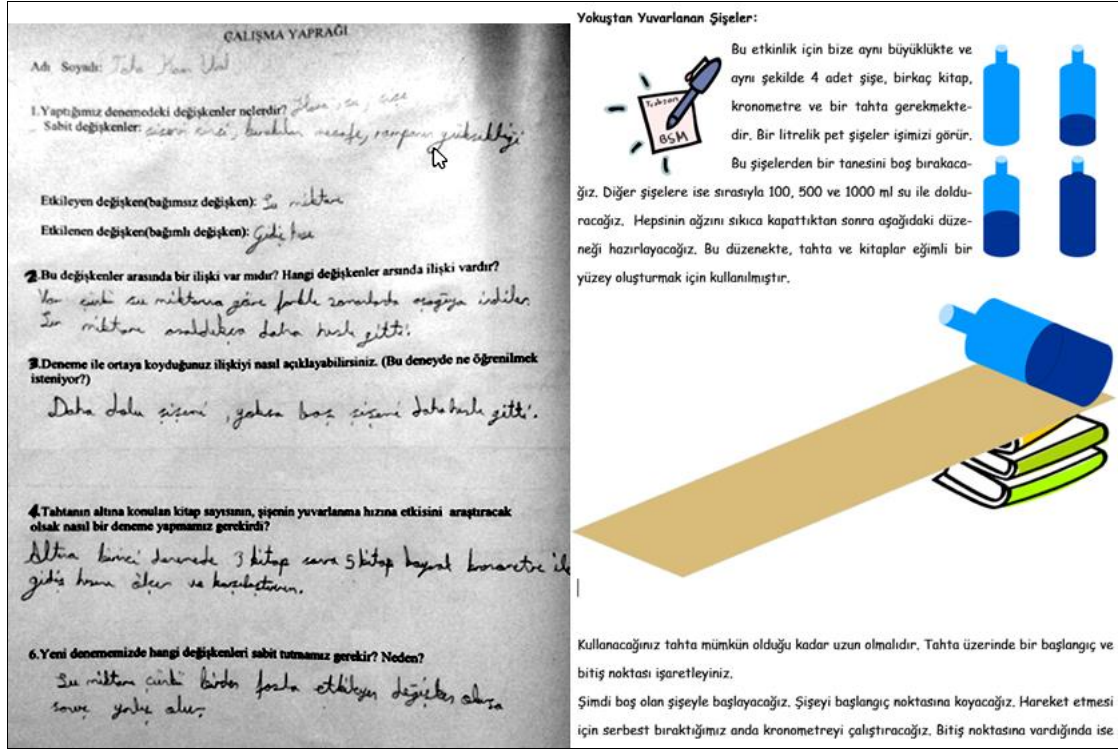 ÇALIŞMA YAPRAĞI
Adı Soyadı: Taha
1.Yaptığımız denemedeki değişkenler nelerdir? su, şişe
Sabit değişkenler: şişenin cinsi, bırakılan mesafe, rampanın yüksekliği
Etkileyen değişken(bağımsız değişken): Su miktarı
Etkilenen değişken(bağımlı değişken): Gidiş hızı
2.Bu değişkenler arasında bir ilişki var mıdır? Hangi değişkenler arsında ilişki vardır?
Var çünkü su miktarına göre farklı zamanlarda aşağıya indiler.
Su miktarı azaldıkça daha hızlı gitti.
3.Deneme ile ortaya koyduğunuz ilişkiyi nasıl açıklayabilirsiniz. (Bu deneyde ne öğrenilmek
isteniyor?)
Daha dolu şişemi, yoksa boş şişemi daha hızlı gitti.
4.Tahtanın altına konulan kitap sayısının, şişenin yuvarlanma hızına etkisini araştıracak
olsak nasıl bir deneme yapmamız gerekirdi?
Altına birinci denemede 3 kitap sonra 5 kitap koyarak kronometre ile
gidiş hızını ölçer ve karşılaştırırım.
6.Yeni denememizde hangi değişkenleri sabit tutmamız gerekir? Neden?
Su miktarı çünkü birden fazla etkileyen değişken olursa
sonuç yanlış olur.
Yokuştan Yuvarlanan Şişeler:
Trabzon
BSM
Bu etkinlik için bize aynı büyüklükte ve
aynı şekilde 4 adet şişe, birkaç kitap,
kronometre ve bir tahta gerekmekte-
dir. Bir litrelik pet şişeler işimizi görür.
Bu şişelerden bir tanesini boş bırakaca-
ğız. Diğer şişelere ise sırasıyla 100, 500 ve 1000 ml su ile doldu-
racağız. Hepsinin ağzını sıkıca kapattıktan sonra aşağıdaki düze-
neği hazırlayacağız. Bu düzenekte, tahta ve kitaplar eğimli bir
yüzey oluşturmak için kullanılmıştır.
Kullanacağınız tahta mümkün olduğu kadar uzun olmalıdır. Tahta üzerinde bir başlangıç ve
bitiş noktası işaretleyiniz.
Şimdi boş olan şişeyle başlayacağız. Şişeyi başlangıç noktasına koyacağız. Hareket etmesi
için serbest bıraktığımız anda kronometreyi çalıştıracağız. Bitiş noktasına vardığında ise